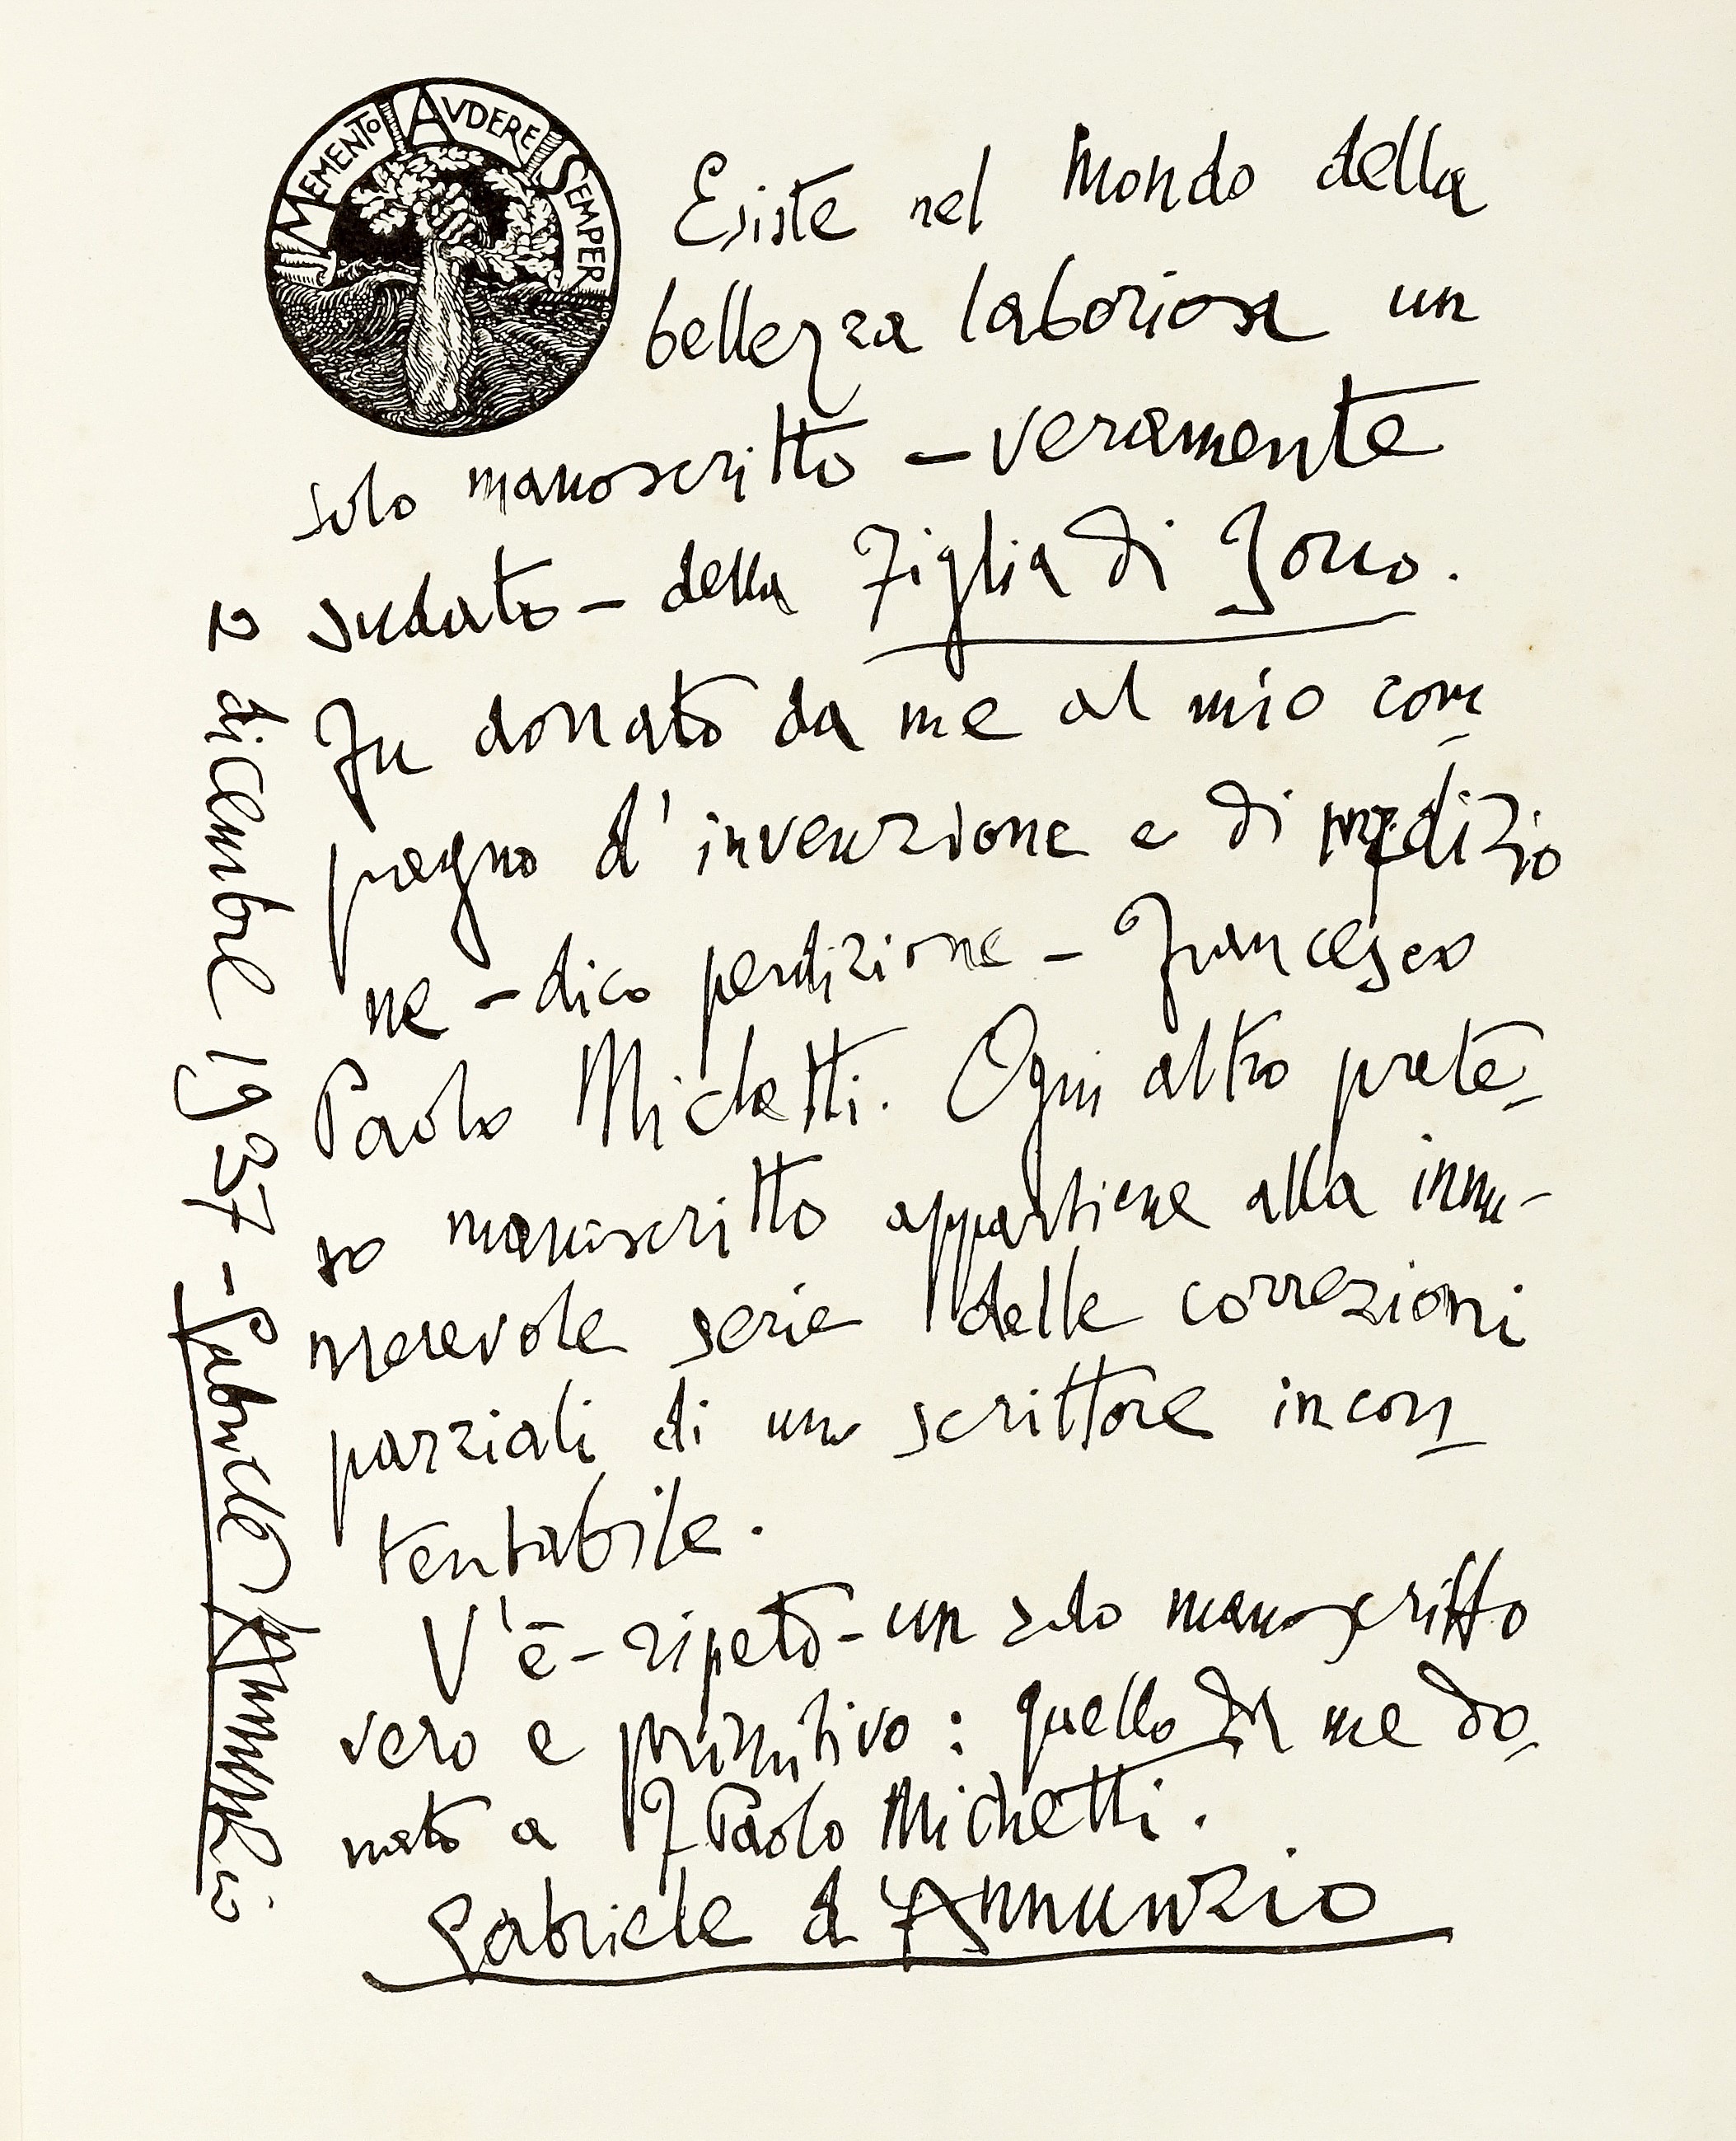 MEMENTO AVDERE SEMPER
Esiste nel mondo della
bellezza laboriosa un
solo manoscritto – veramente
sudato – della Figlia di Jorio.
Fu donato da me al mio com-
pagno d'invenzione e di perdizio
ne – dico perdizione – Francesco
Paolo Michetti. Ogni altro prete-
so manoscritto appartiene alla innu-
merevole serie delle correzioni
parziali di uno scrittore incon-
tentabile.
V'è – ripeto – un solo manoscritto
vero e primitivo: quello da me do-
nato a F Paolo Michetti.
Gabriele d'Annunzio
2 dicembre 1937 – Gabriele d'Annunzio